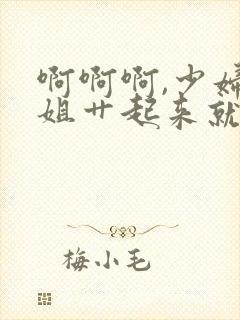 啊啊啊,少婦
姐艹起来就
梅小毛